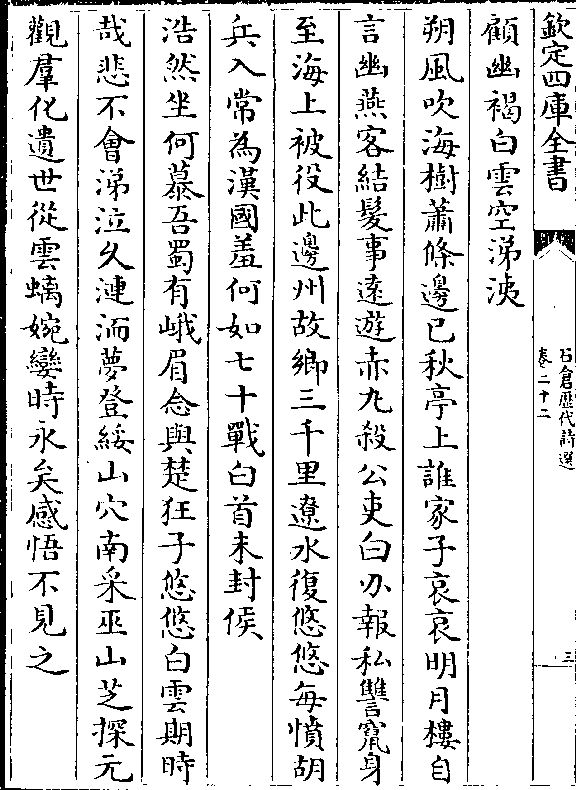 欽定四庫全書
石倉歷代詩選
卷二十二
三
顧幽褐白雲空涕洟
朔風吹海樹蕭條邊已秋亭上誰家子哀哀明月樓自
言幽燕客結髮事逺遊赤丸殺公吏白刃報私讐竄身
至海上被役此邊州故鄉三千里遼水復悠悠每憤胡
兵入常為漢國羞何如七十戰白首未封侯
浩然坐何慕吾蜀有峨眉念與楚狂子悠悠白雲期時
哉悲不會涕泣久漣洏夢登綏山穴南采巫山芝探元
觀羣化遺世從雲螭婉孌時永矣感悟不見之